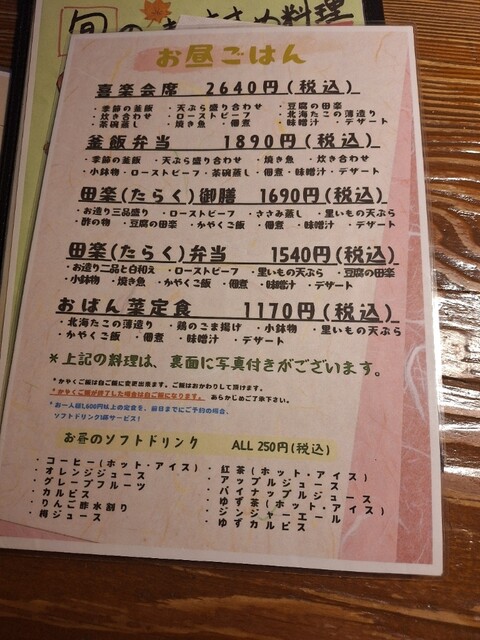 旬の
おすすめ料理
お昼ごはん
喜楽会席 2640円(税込)
・季節の釜飯 ・天ぷら盛り合わせ ・豆腐の田楽
・炊き合わせ ・ローストビーフ ・北海たこの薄造り
・茶碗蒸し ・焼き魚 ・佃煮 ・味噌汁 ・デザート
釜飯弁当 1890円(税込)
・季節の釜飯 ・天ぷら盛り合わせ ・焼き魚 ・炊き合わせ
・小鉢物・ローストビーフ・茶碗蒸し・佃煮・味噌汁・デザート
田楽(たらく)御膳 1690円(税込)
・お造り三品盛り ・ローストビーフ ・ささみ蒸し ・里いもの天ぷら
・酢の物 ・豆腐の田楽 ・かやくご飯 ・佃煮 ・味噌汁 ・デザート
田楽(たらく)弁当 1540円(税込)
・お造り二品と白和え ・ローストビーフ ・里いもの天ぷら ・豆腐の田楽
・小鉢物 ・焼き魚 ・かやくご飯 ・佃煮 ・味噌汁 ・デザート
おばん菜定食 1170円(税込)
・北海たこの薄造り ・鶏のごま揚げ ・小鉢物 ・里いもの天ぷら
・かやくご飯 ・佃煮 ・味噌汁 ・デザート
＊上記の料理は、裏面に写真付きがございます。
＊かやくご飯は白ご飯に変更出来ます。ご飯はおかわりして頂けます。
＊かやくご飯が終了した場合は白ご飯になります。 あらかじめご了承下さい。
＊お一人様1,600円以上の定食を、前日までにご予約の場合、
ソフトドリンク1杯サービス！
お昼のソフトドリンク ALL 250円(税込)
・コーヒー(ホット・アイス) ・紅茶(ホット・アイス)
・オレンジジュース ・アップルジュース
・グレープフルーツ ・パイナップルジュース
・カルピス ・ゆず茶(ホット・アイス)
・りんご酢水割り ・ジンジャーエール
・梅ジュース ・ゆずカルピス